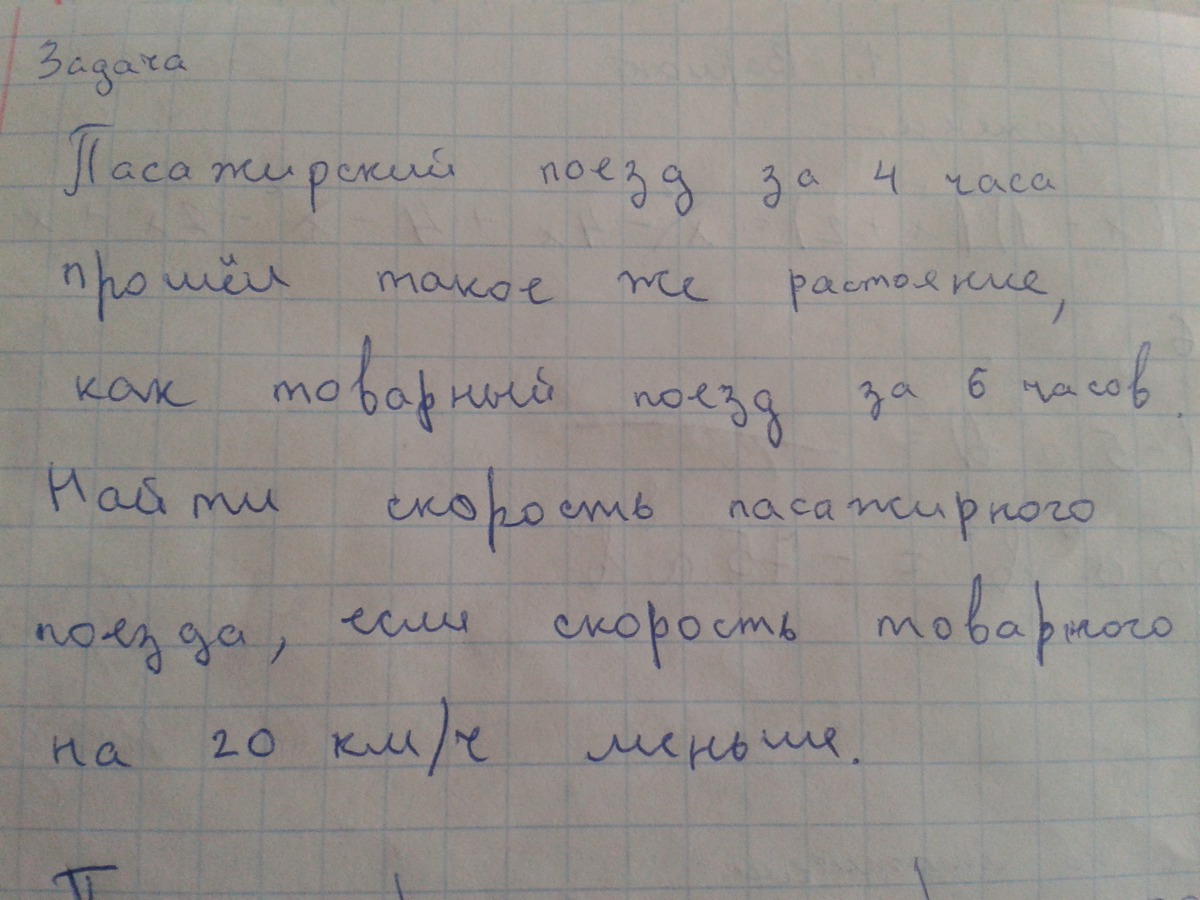 Задача
Пасажирский поезд за 4 часа
прошёл такое же растояние,
как товарный поезд за 6 часов.
Найти скорость пасажирного
поезда, если скорость товарного
на 20 км/ч меньше.